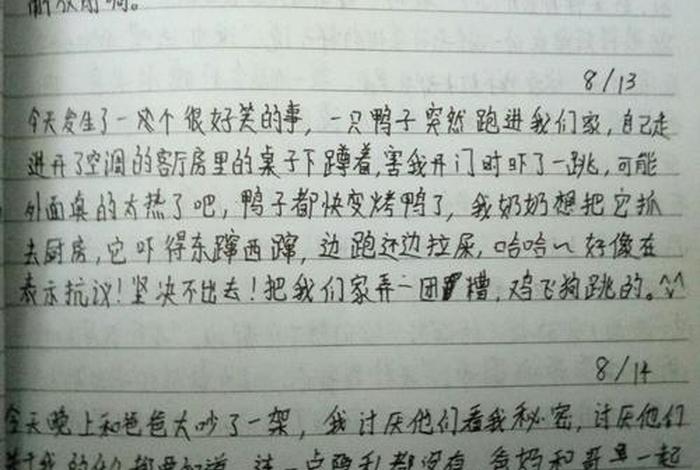 8/13
今天发生了一个很好笑的事，一只鸭子突然跑进我们家，自己走
进开了空调的客厅房里的桌子下蹲着，害我开门时吓了一跳，可能
外面真的太热了吧，鸭子都快变烤鸭了，我奶奶想把它抓
去厨房，它吓得东蹿西蹿，边跑还边拉屎，哈哈~好像在
表示抗议！坚决不出去！把我们家弄一团糟，鸡飞狗跳的。^^
8/14
今天晚上和爸爸大吵了一架，我讨厌他们看我秘密，讨厌他们
我的 都要知道，连一点隐私都没有，爸妈和哥 一起